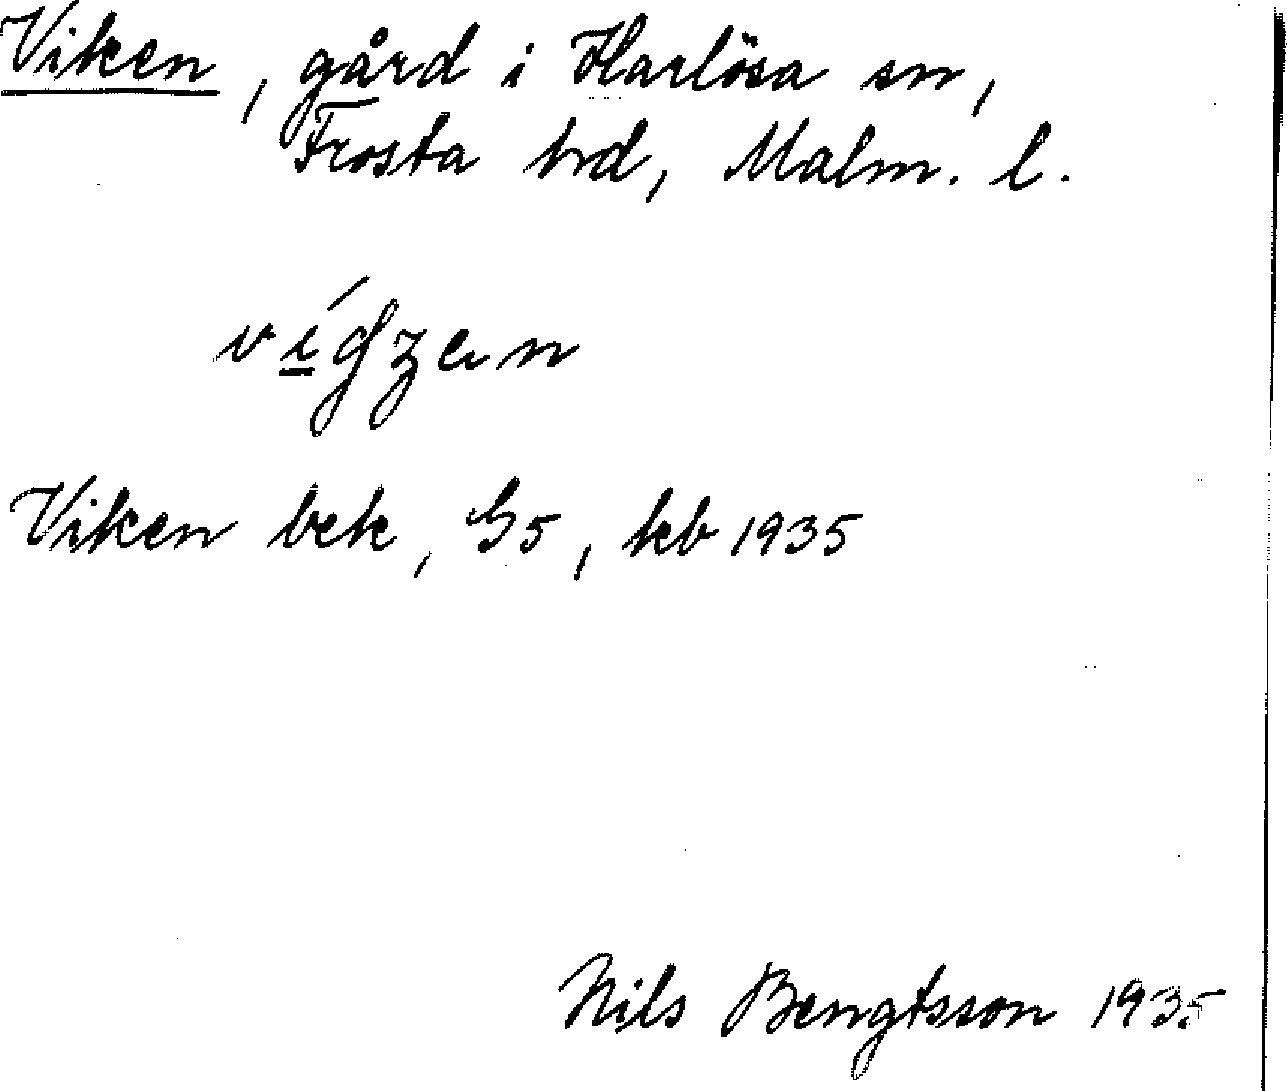 Viken, gård i Harlösa sn,
Frosta hrd, Malm. l.
Viken bek, G5, kb 1935
Nils Bengtsson 1935